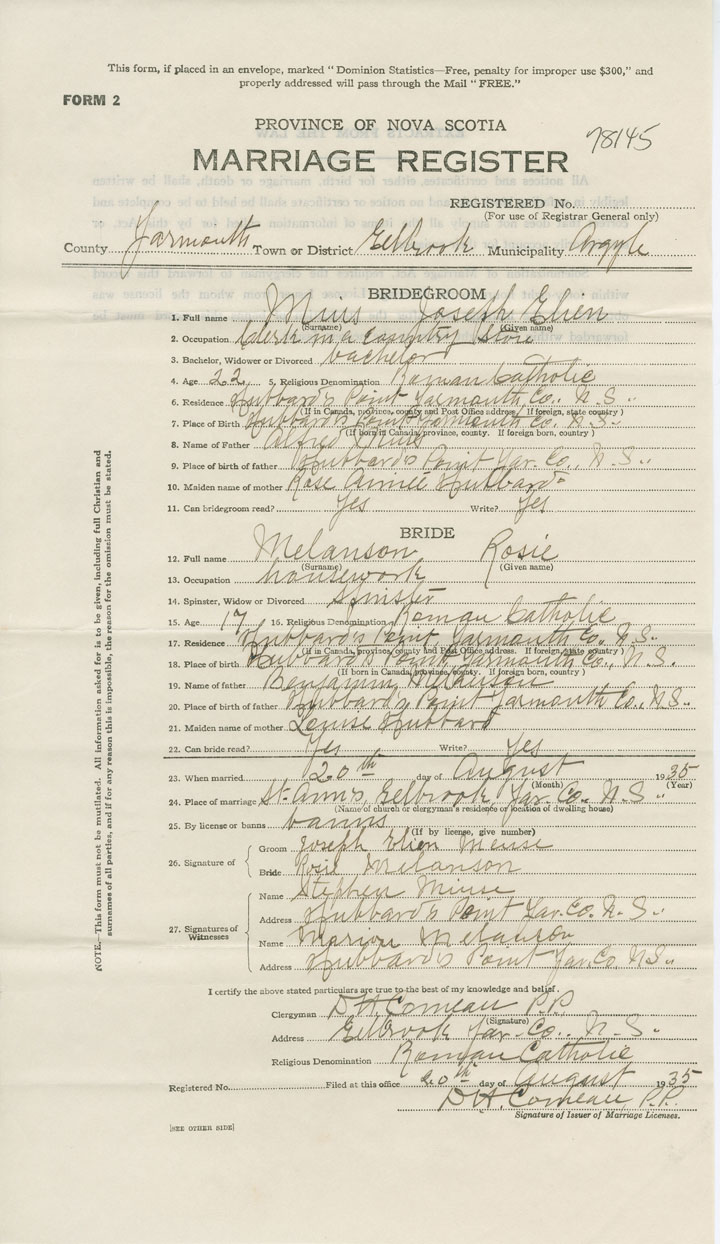 This form, if placed in an envelope, marked "Dominion Statistics—Free, penalty for improper use $300," and
properly addressed will pass through the Mail "FREE."
FORM 2
PROVINCE OF NOVA SCOTIA
78145
MARRIAGE REGISTER
REGISTERED No.
(For use of Registrar General only)
County Yarmouth Town or District Eelbrook Municipality Argyle
BRIDEGROOM
1. Full name Muis Joseph Elien
(Surname) (Given name)
2. Occupation Clerk in a country store
3. Bachelor, Widower or Divorced bachelor
4. Age 22 5. Religious Denomination Roman Catholic
6. Residence Hubbard's Point Yarmouth Co., N.S.
(If in Canada, province, county and Post Office address. If foreign, state country)
7. Place of Birth Hubbard's Point Yarmouth Co. N.S.
(If born in Canada, province, county. If foreign born, country)
8. Name of Father Alfred Muis
9. Place of birth of father Hubbard's Point Yar. Co., N.S.
10. Maiden name of mother Rose Aimée Hubbard
11. Can bridegroom read? Yes Write? Yes
BRIDE
12. Full name Melanson Rosie
(Surname) (Given name)
13. Occupation housework
14. Spinster, Widow or Divorced Spinster
15. Age 17 16. Religious Denomination Roman Catholic
17. Residence Hubbard's Point Yarmouth Co. N.S.
(If in Canada, province, county and Post Office address. If foreign, state country)
18. Place of birth Hubbard's Point Yarmouth Co., N.S.
(If born in Canada, province, county. If foreign born, country)
19. Name of father Benjamin Melanson
20. Place of birth of father Hubbard's Point Yarmouth Co., N.S.
21. Maiden name of mother Louise Hubbard
22. Can bride read? Yes Write? Yes
23. When married 20th day of August 1935
(Month) (Year)
24. Place of marriage St. Ann's Eelbrook, Yar. Co. N.S.
(Name of church or clergyman's residence or location of dwelling house)
25. By license or banns banns
(If by license, give number)
26. Signature of
Groom Joseph Elien Meuse
Bride Rosie Melanson
27. Signatures of Witnesses
Name Stephen Miuse
Address Hubbard's Point Yar. Co. N.S.
Name Marion Melanson
Address Hubbard's Point Yar. Co. N.S.
I certify the above stated particulars are true to the best of my knowledge and belief.
Clergyman D H Comeau P.P.
(Signature)
Address Eelbrook Yar. Co., N.S.
Religious Denomination Roman Catholic
Registered No. Filed at this office 20th day of August 1935
D H. Comeau, P.P.
Signature of Issuer of Marriage Licenses.
[SEE OTHER SIDE]
NOTE.—This form must not be mutilated. All information asked for is to be given, including full Christian and
surnames of all parties, and if for any reason this is impossible, the reason for the omission must be stated.